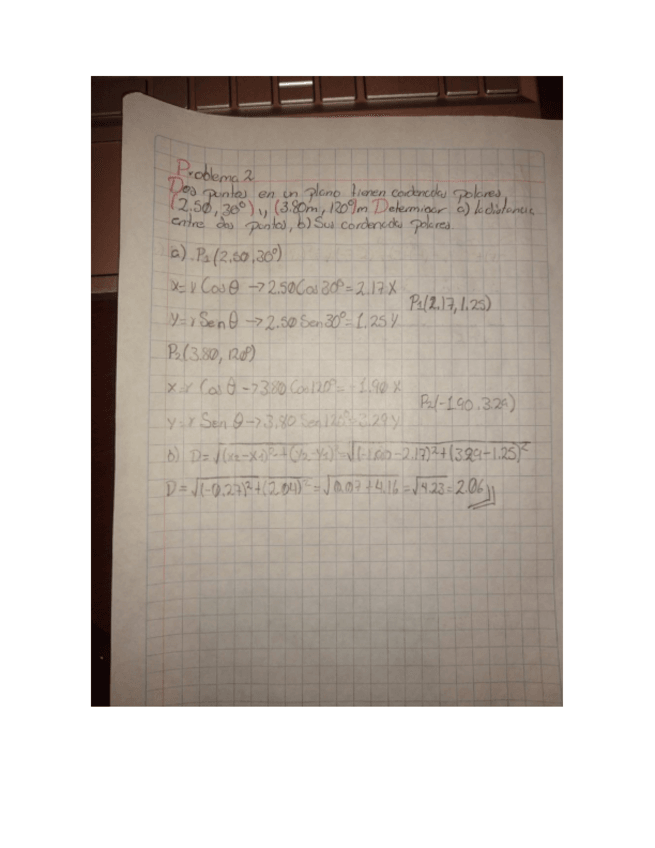 Problema 2.
Dos puntos en un plano tienen cordenadas polares
(2.50, 30°) y (3.80m, 120°)m Determinar a) la distancia
entre dos puntos, b) Sus cordenadas polares.
a) P₁(2.50,30°)
x=r Cos θ → 2.50 Cos 30° = 2.17 X
P₁(2.17,1.25)
y=r Sen θ → 2.50 Sen 30° = 1.25 Y
P₂(3.80, 120°)
x=r Cos θ → 3.80 Cos 120° = -1.90 X
P₂(-1.90, 3.29)
y=r Sen θ → 3.80 Sen 120° = 3.29 y
b) D= √(x₂-x₁)²+(y₂-y₁)² = √(-1.90-2.17)²+(3.29-1.25)²
D= √(-0.27)²+(2.04)² = √0.07+4.16 = √4.23 = 2.06